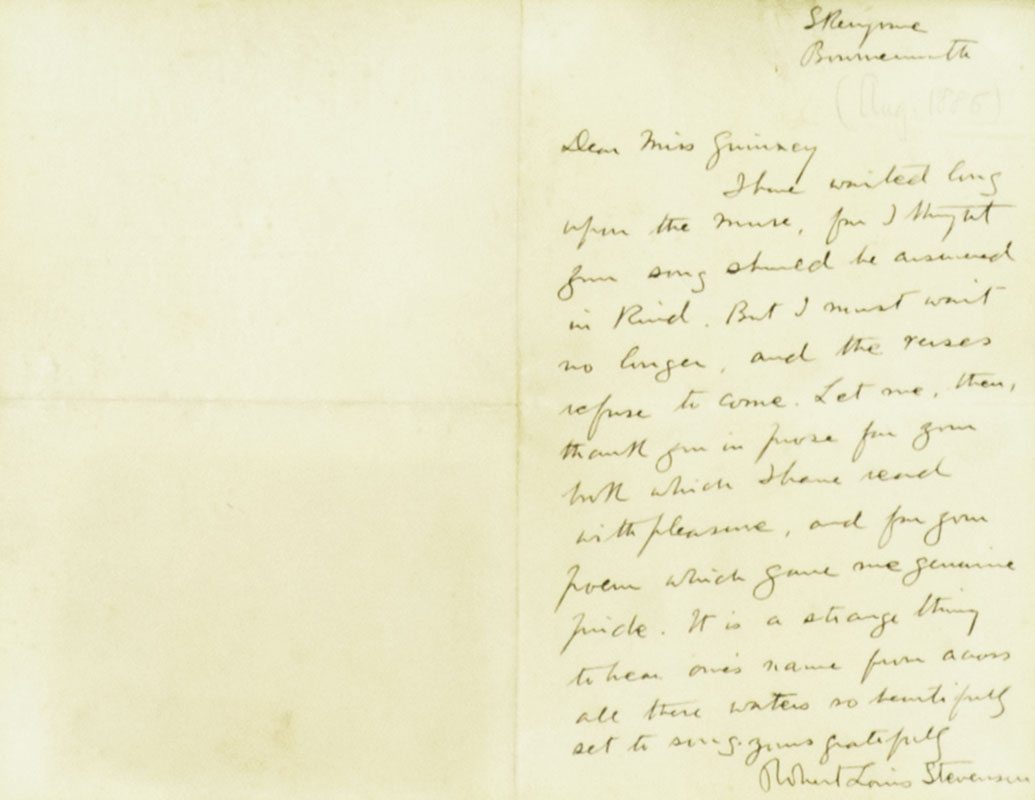 Skerryvore
Bournemouth
(Aug. 1886)
Dear Miss Guiney
I have waited long
upon the muse, for I thought
your song should be answered
in kind. But I must wait
no longer, and the verses
refuse to come. Let me, then,
thank you in prose for your
book which I have read
with pleasure, and for your
poem which gave me genuine
pride. It is a strange thing
to hear one's name from across
all these waters so beautifully
set to song. yours gratefully
Robert Louis Stevenson